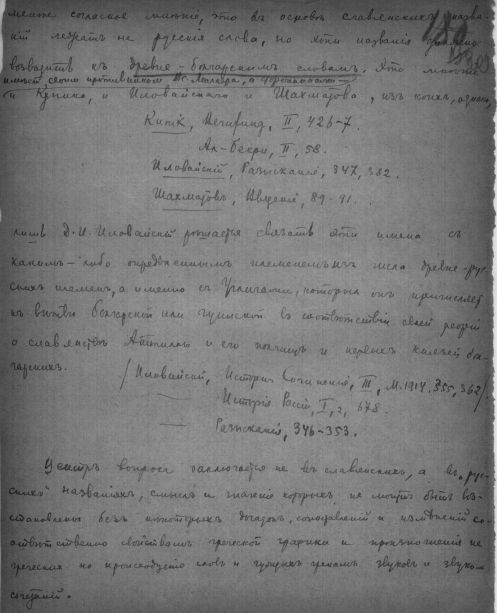 мение согласное мнение, что въ основѣ славянскихъ назва-
ній лежатъ не русскія слова, но эти названія
возводятъ къ древне-болгарскимъ словамъ. Это мнѣніе
имѣетъ своимъ противникомъ Вс. Миллера, а
и Куника, и Иловайскаго и Шахматова, изъ коихъ, однако,
Kunik, II, 426-7.
Ал-Бекри, II, 58.
Иловайскій, Разысканія, 347, 382.
Шахматовъ, Введеніе, 89-91.
лишь Д. И. Иловайскій рѣшается связать эти имена съ
какимъ-либо опредѣленнымъ племенемъ изъ числа древне-рус-
скихъ племенъ, а именно съ Угличами, которыхъ онъ причисляетъ
къ вѣтви болгарской или гуннской въ соотвѣтствіи своей теоріи
о славянствѣ Аттилы и его полчищъ и первыхъ князей бол-
гарскихъ.
/Иловайскій, Историч. Сочиненія, III, М. 1914, 355, 362/
Исторія Россіи, I, 2, 678.
Разысканія, 346-353.
Центръ вопроса заключается не въ славянскихъ, а въ „рус-
скихъ" названіяхъ, смыслъ и значеніе которыхъ не могутъ быть воз-
становлены безъ нѣкоторыхъ догадокъ, сопоставленій и измѣненій со-
отвѣтственно свойствамъ греческой графики и произношенія не
греческихъ по происхожденію словъ и чуждыхъ грекамъ звуковъ и звуко-
сочетаній.